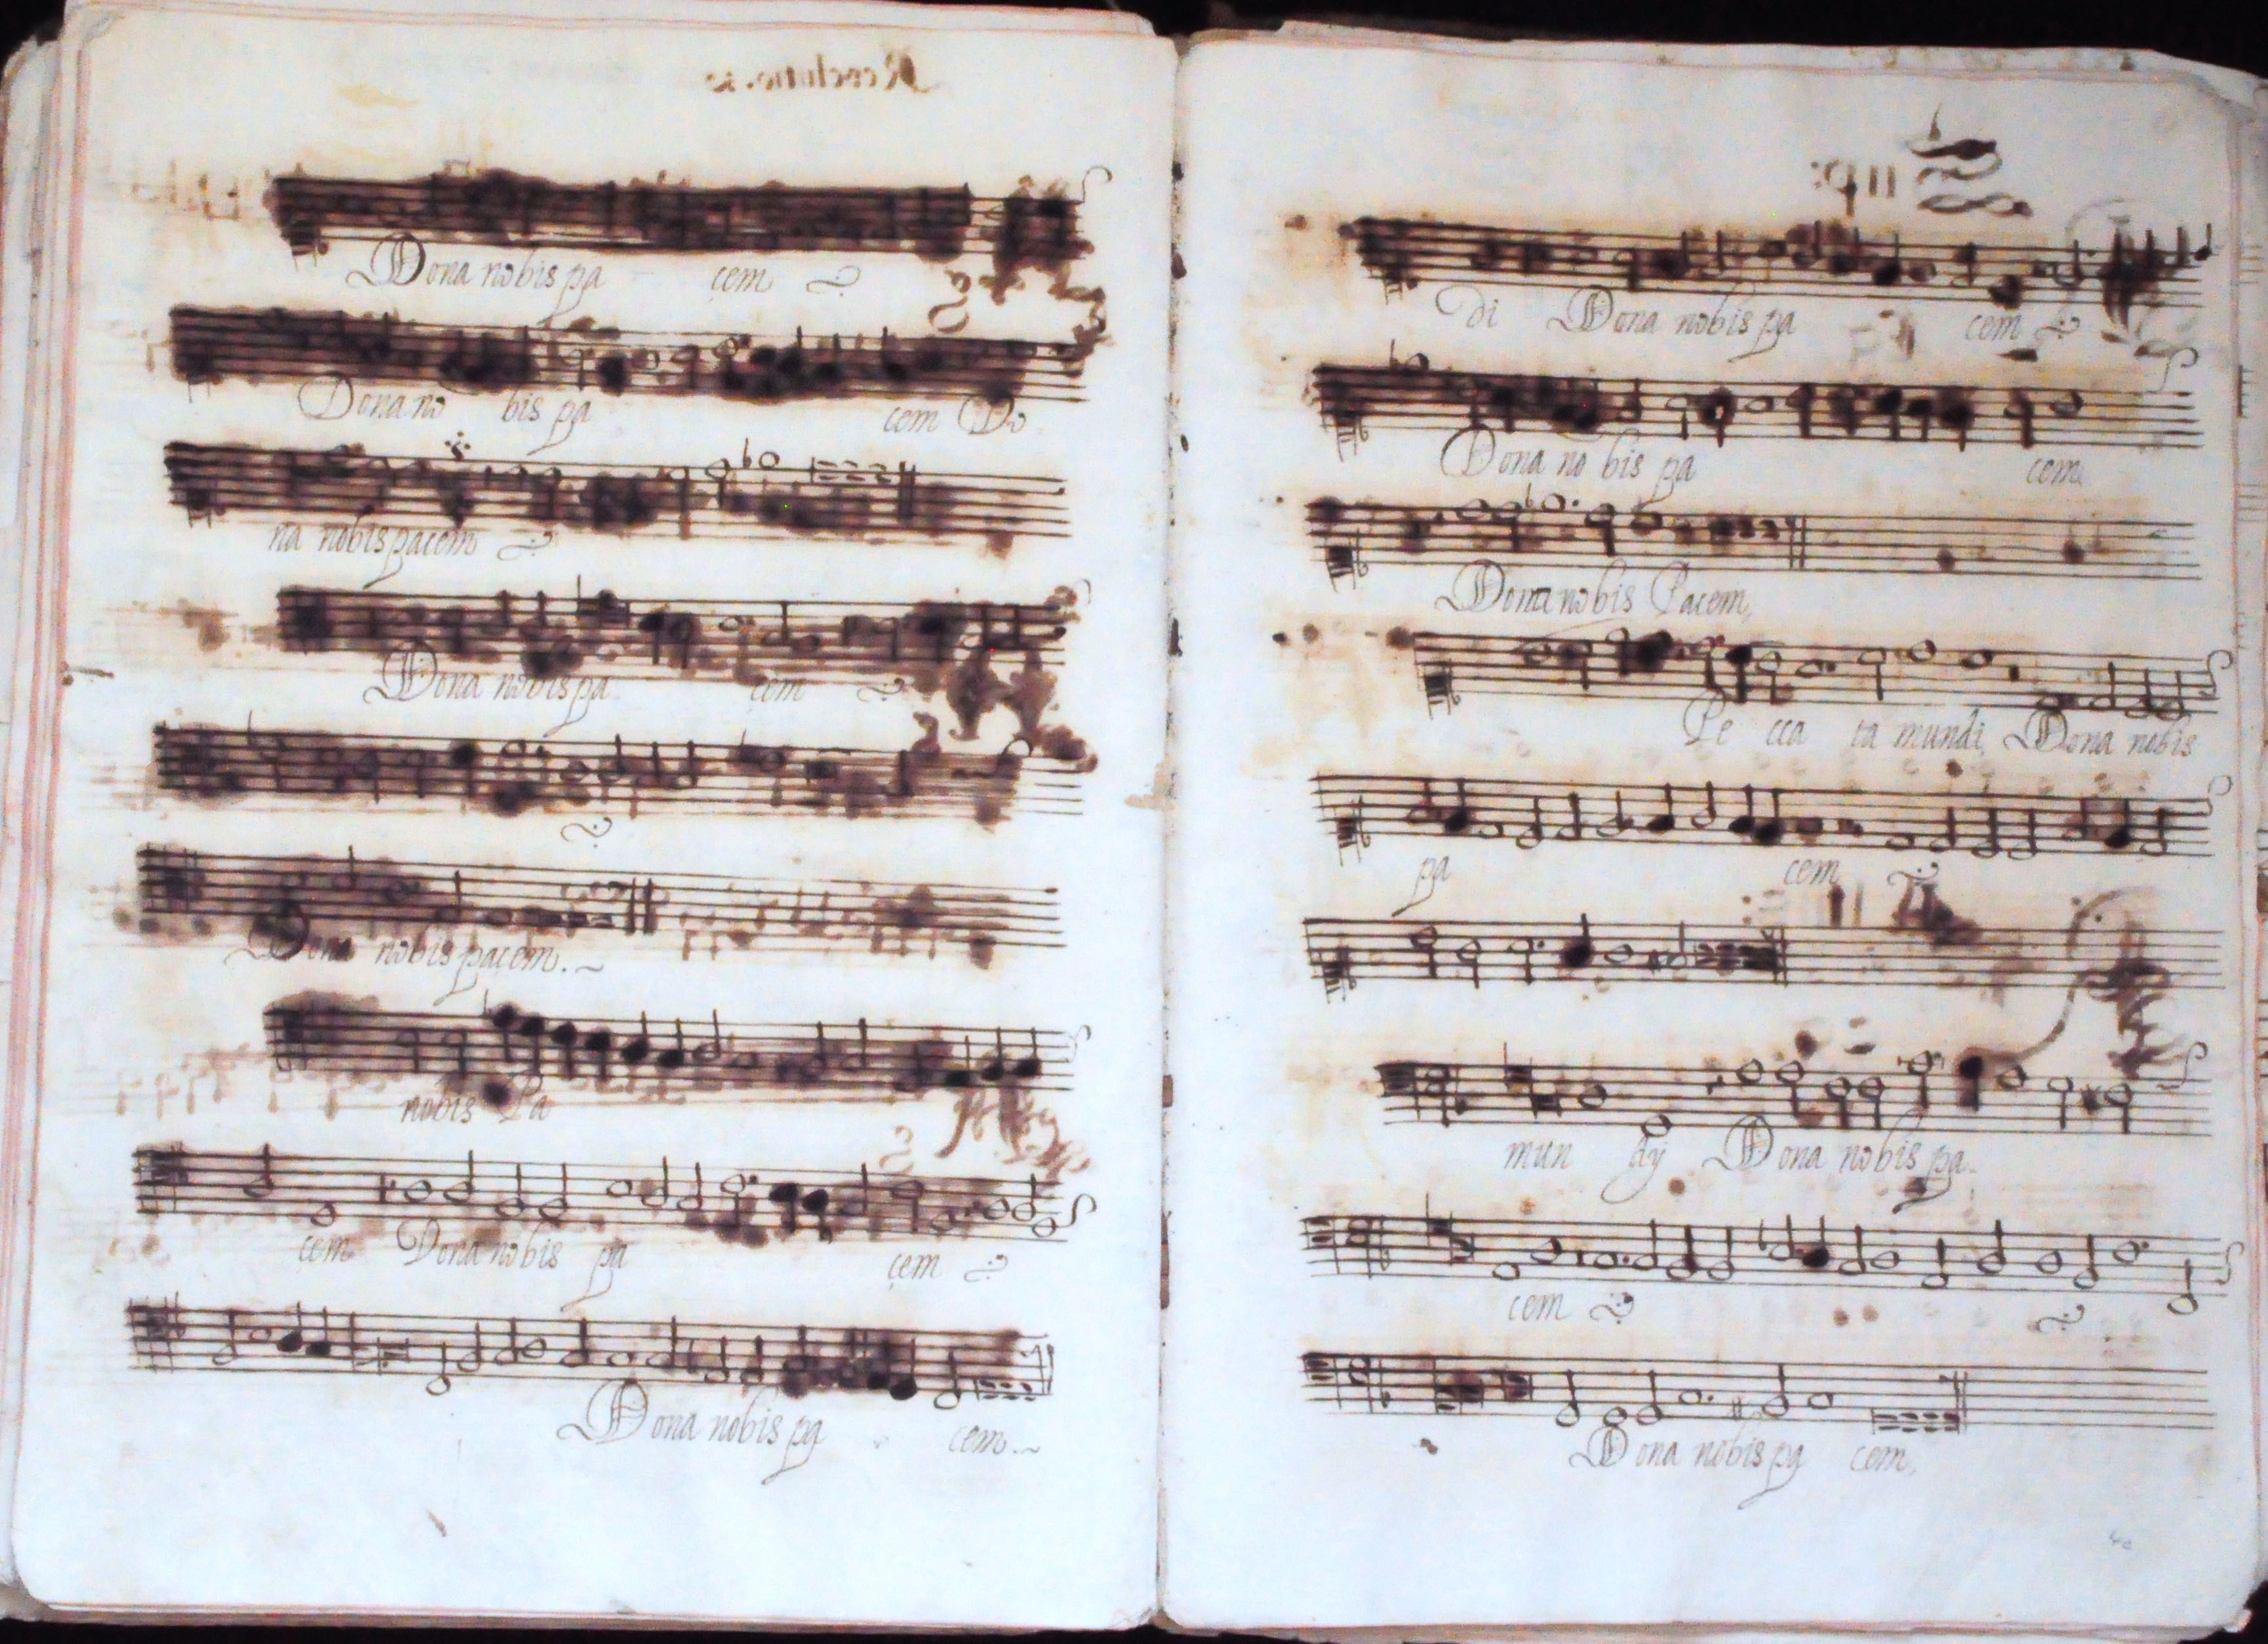 Dona nobis pa cem
Dona no bis pa cem Do
na nobis pacem
Dona nobis pa cem
Dona nobis pacem.
nobis Pa
cem Dona nobis pa cem
Dona nobis pa cem.
di Dona nobis pa cem
Dona no bis pa cem
Dona nobis Pacem,
Pe cca ta mundi, Dona nobis
pa cem
mun dy Dona nobis pa
cem
Dona nobis pa cem,